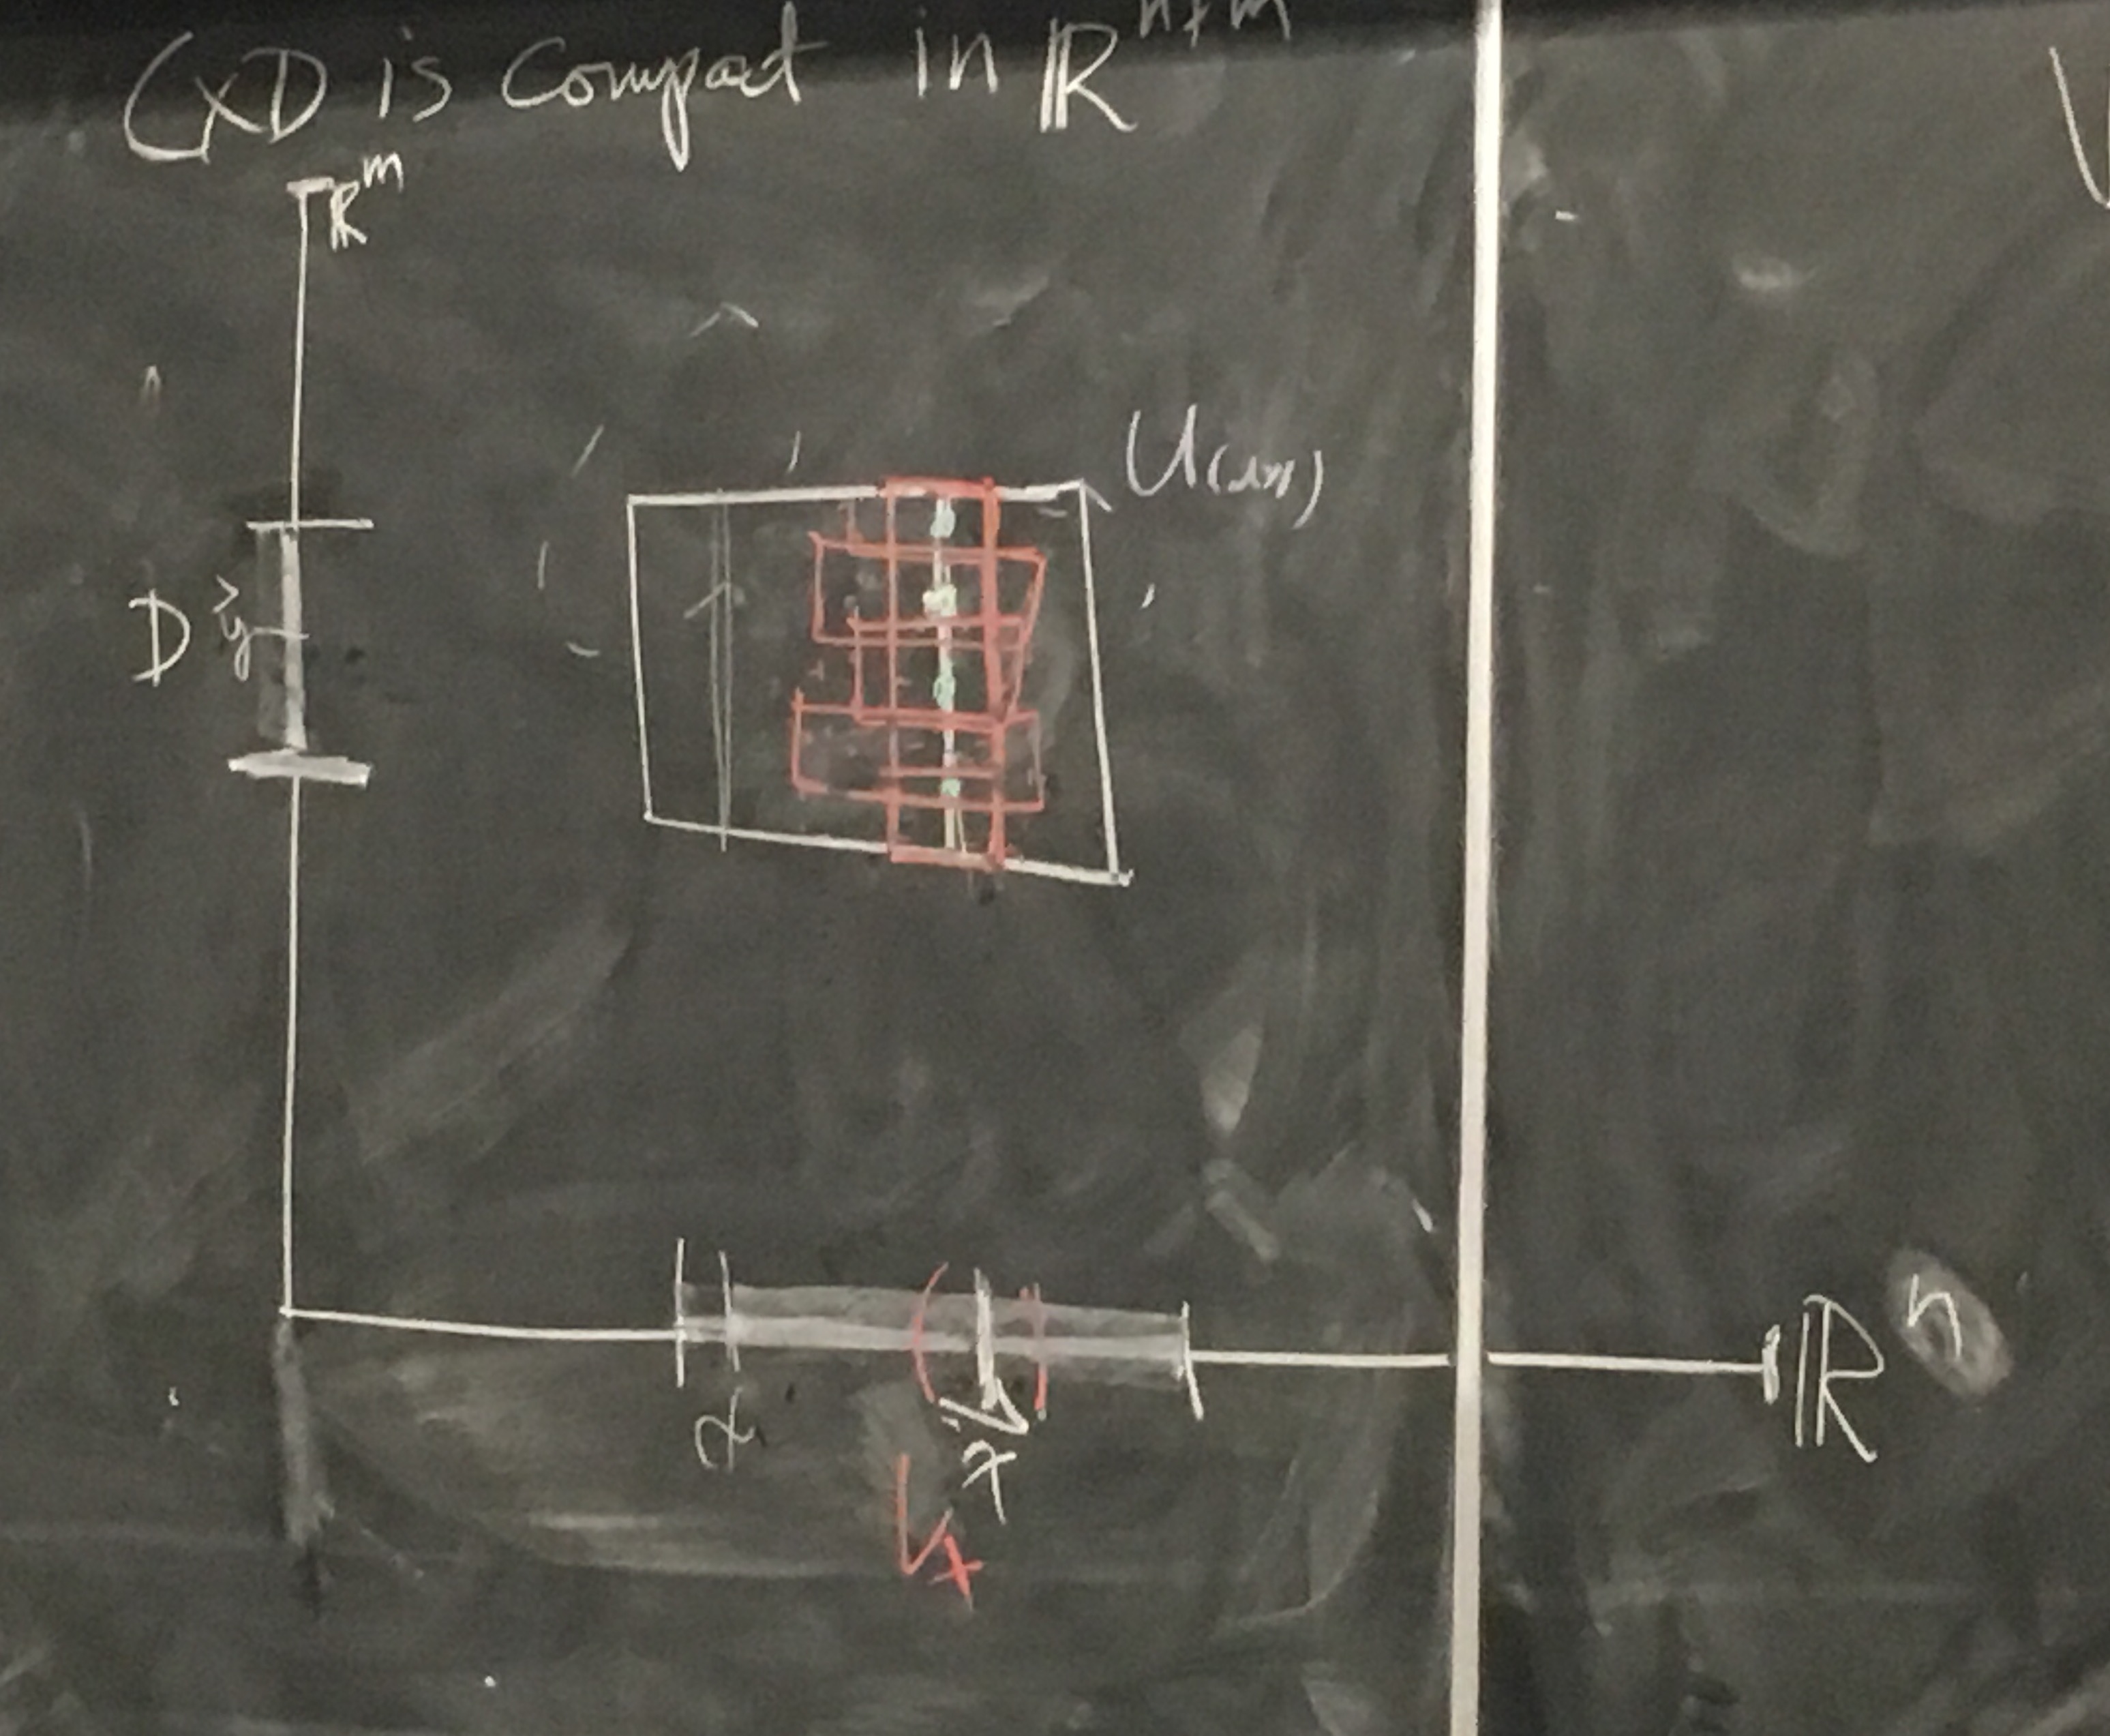 C×D is compact in ℝⁿ⁺ᵐ
ℝᵐ
D y
x
x
Vₓ
ℝⁿ